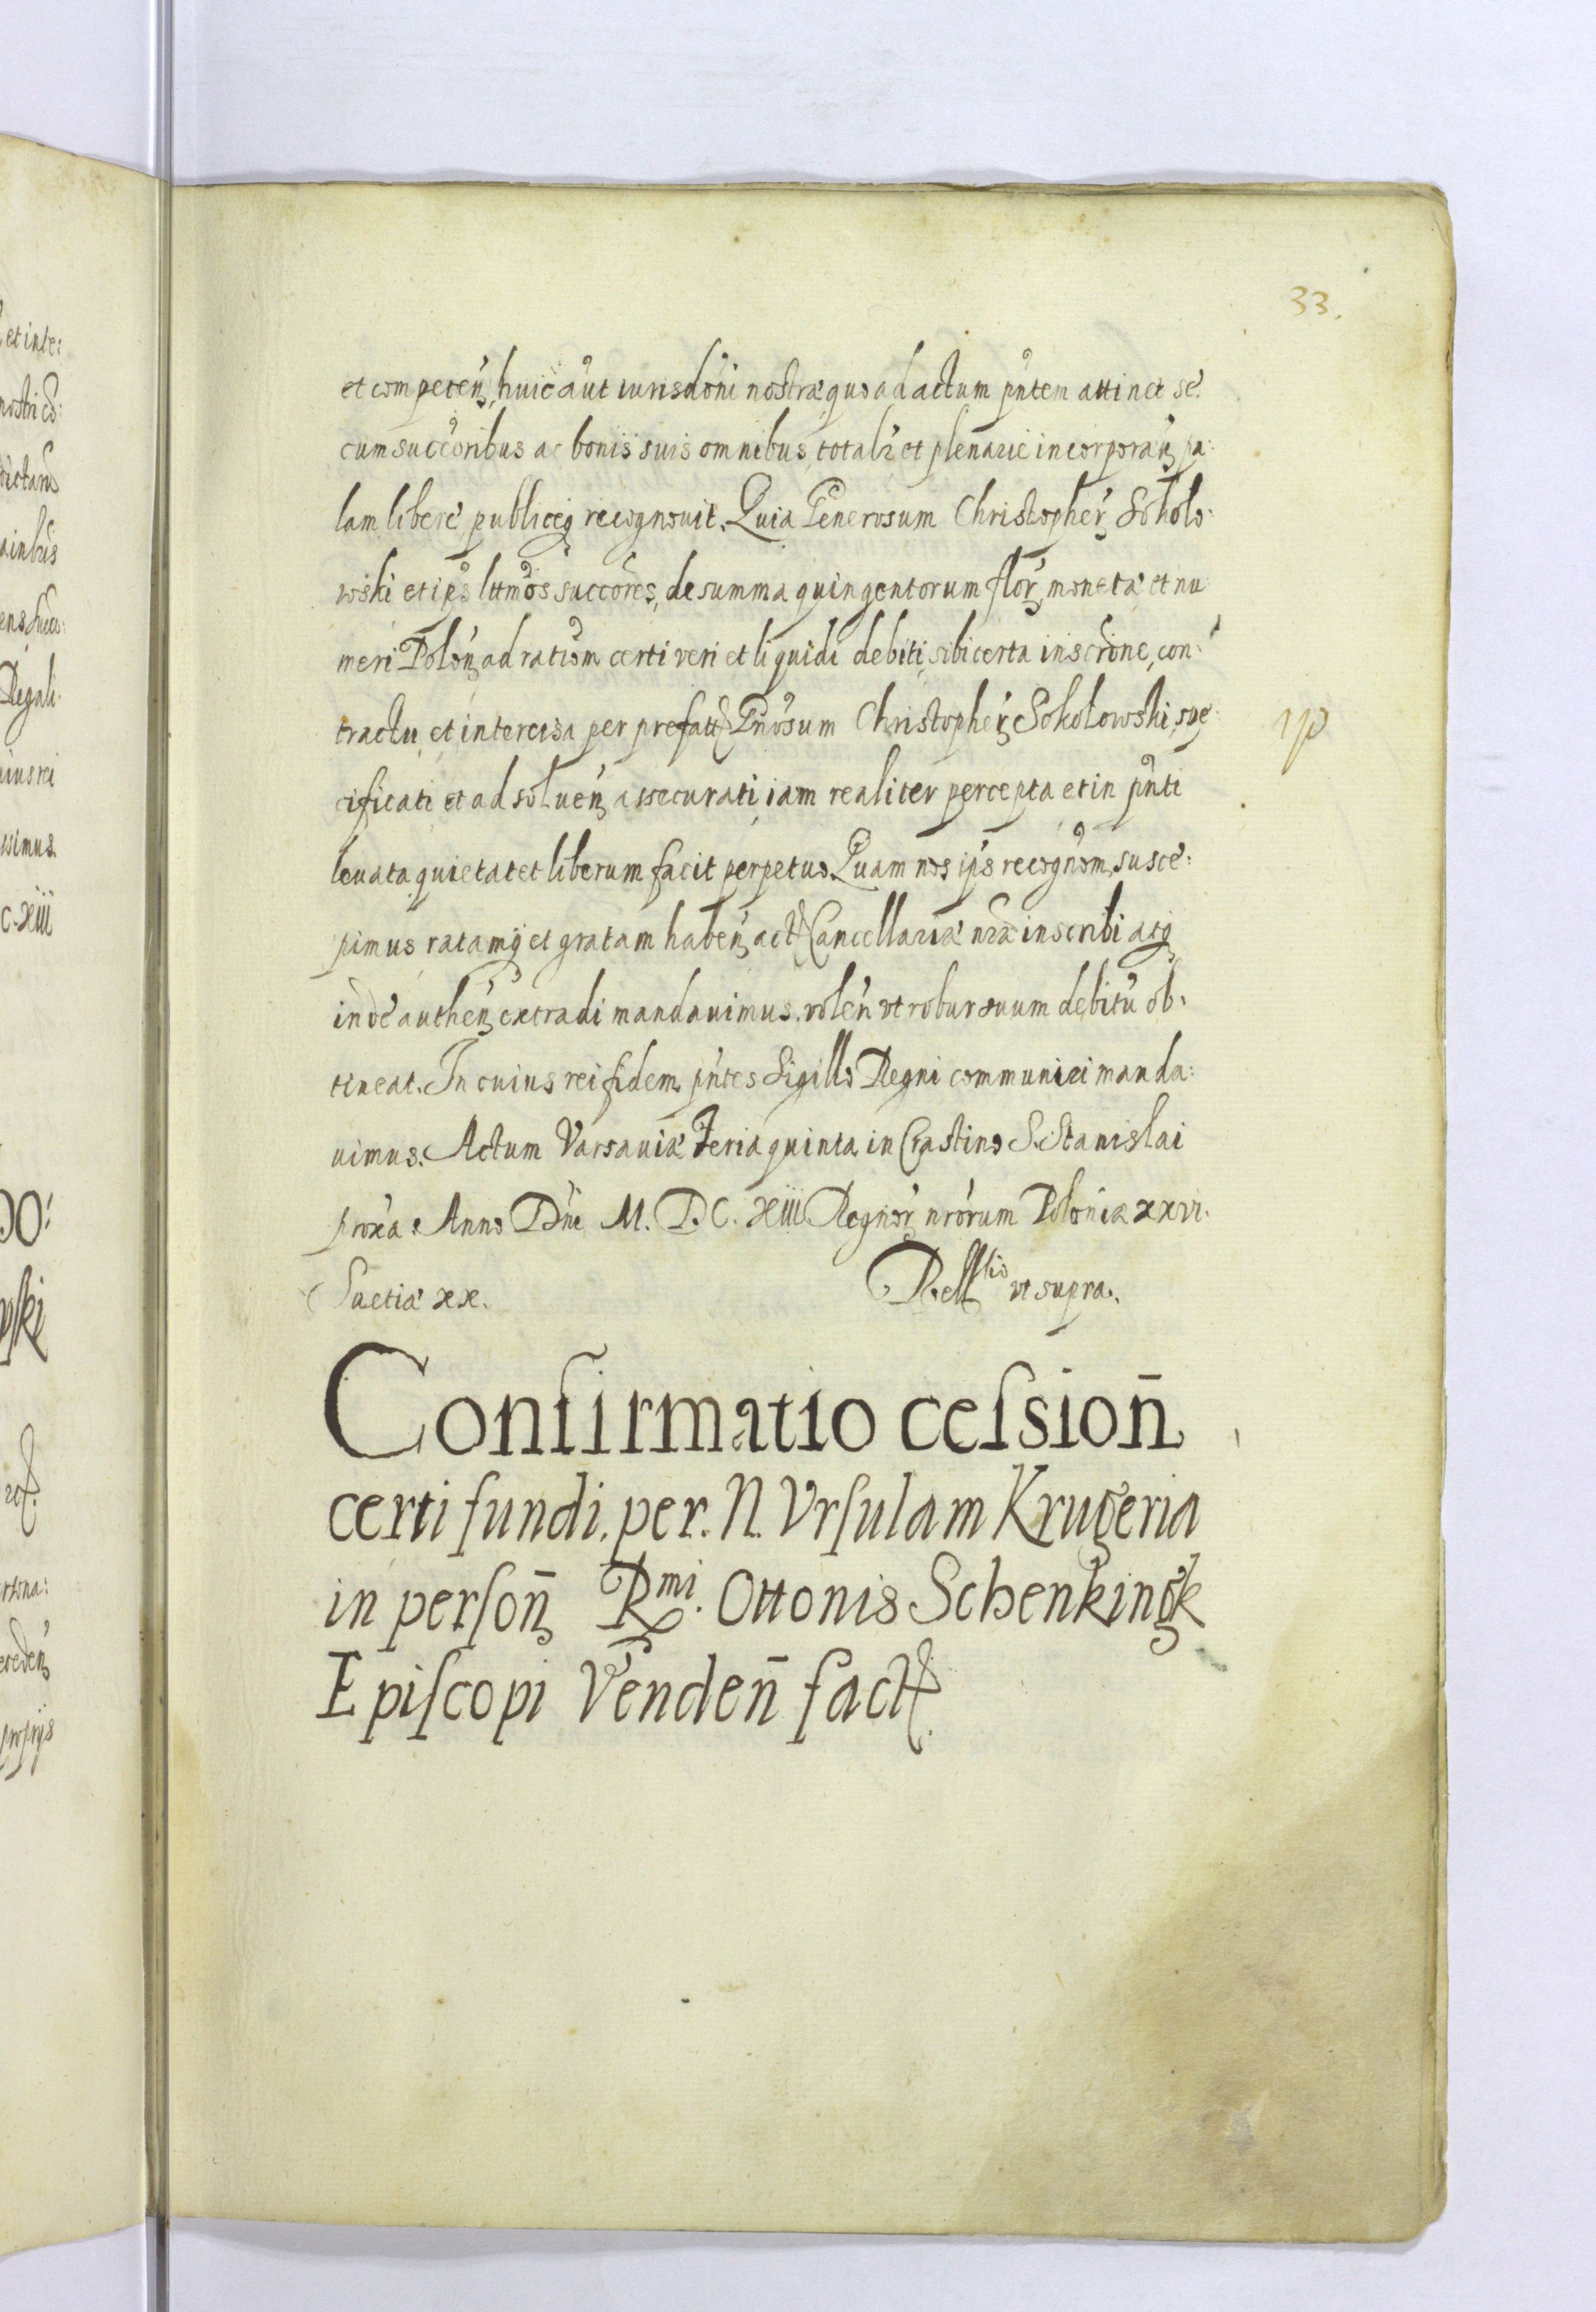 33.
et competeń, huic aut iurisdoni nostræ, quo ad actum pntem attinet se
cum succoribus ac bonis suis omnibus, totalr et plenarie incorporań, pa:
lam libere publiceq recognouit. Quia Generosum Christopher Sokolo:
wski et ips ltmos succores, de summa quingentorum flor, monetæ et nu
meri Poloń, ad rationem certi veri et liquidi debiti, sibi certa inscrōne, con:
tractu et intercisa per prefatt Gnosum Christopher Sokolowski, spe
cificati et ad soluen assecurati, iam realiter percepta et in pnti
leuata, quietat et liberum facit perpetuo. Quam nos ips recognom, susce:
pimus ratamq et gratam habeń, act Cancellariæ nræ inscribi atq
inde autheń extradi mandauimus, voleń vt robur suum debitū ob:
tineat. In cuius rei fidem pntes Sigillo Regni communiri manda:
uimus. Actum Varsauiæ Feria quinta in Crastino S. Stanislai
proxa: Anno Dni M. D. C. XIII Regnor nrorum Poloniæ xxvi.
Suetiæ xx. Rell tio vt supra.
Confirmatio ceſsion̄
certi fundi. per. N. Vrſulam Krugeria
in perſon̄ Rmi. Ottonis Schenkingk
Epiſcopi Venden̄ fact